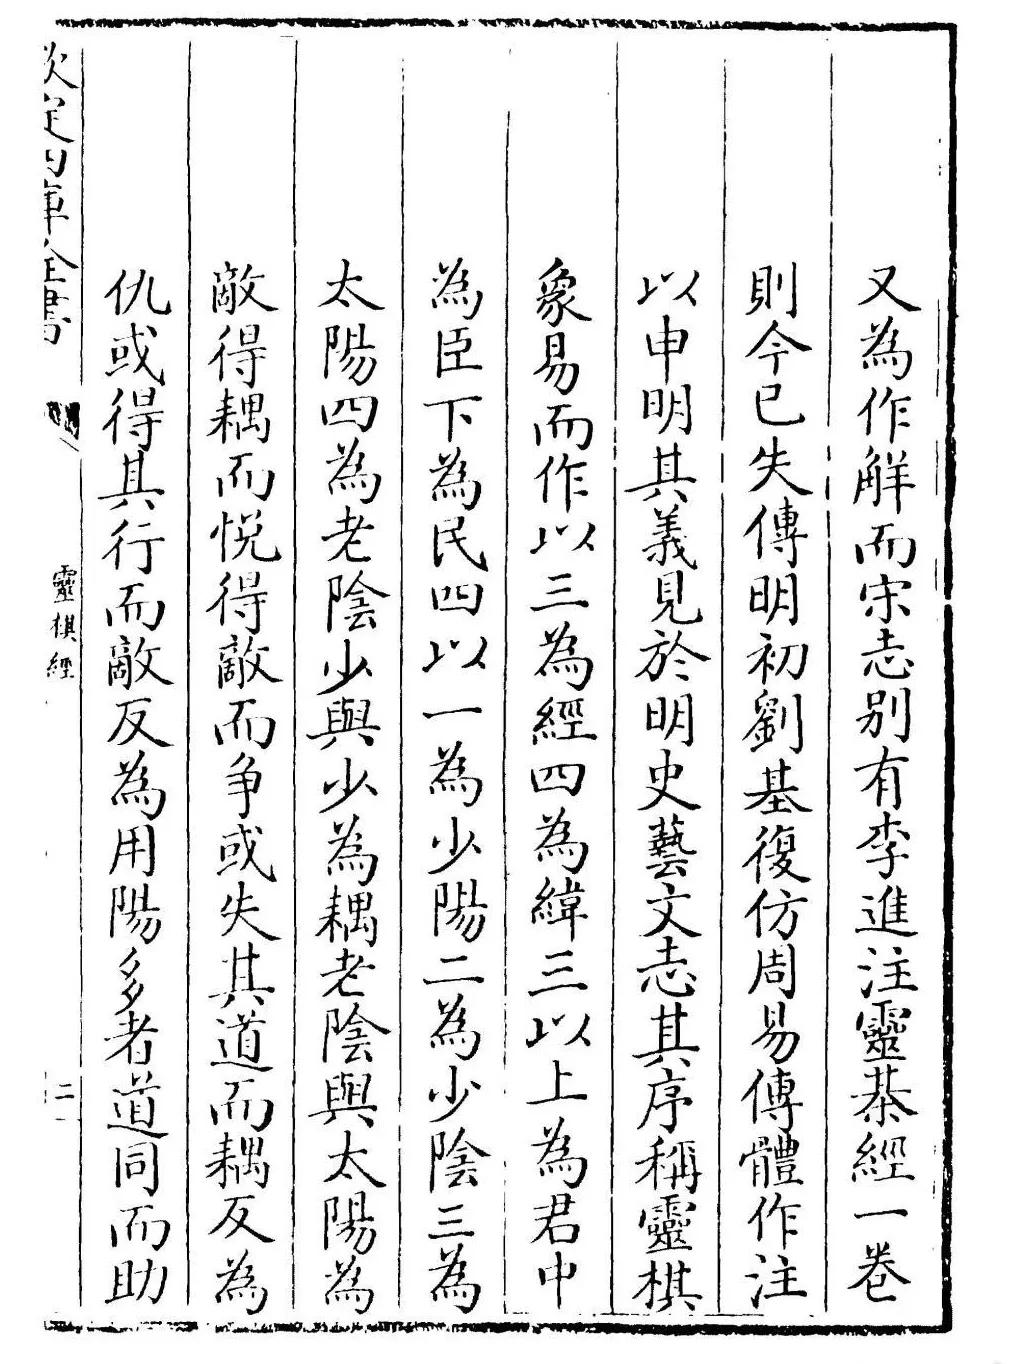 又為作解而宋志别有李進注靈棊經一卷
則今已失傳明初劉基復仿周易傳體作注
以申明其義見於明史藝文志其序稱靈棋
象易而作以三為經四為緯三以上為君中
為臣下為民四以一為少陽二為少陰三為
太陽四為老陰少與少為耦老陰與太陽為
敵得耦而悦得敵而争或失其道而耦反為
仇或得其行而敵反為用陽多者道同而助
欽定四庫全書
靈棋經
二